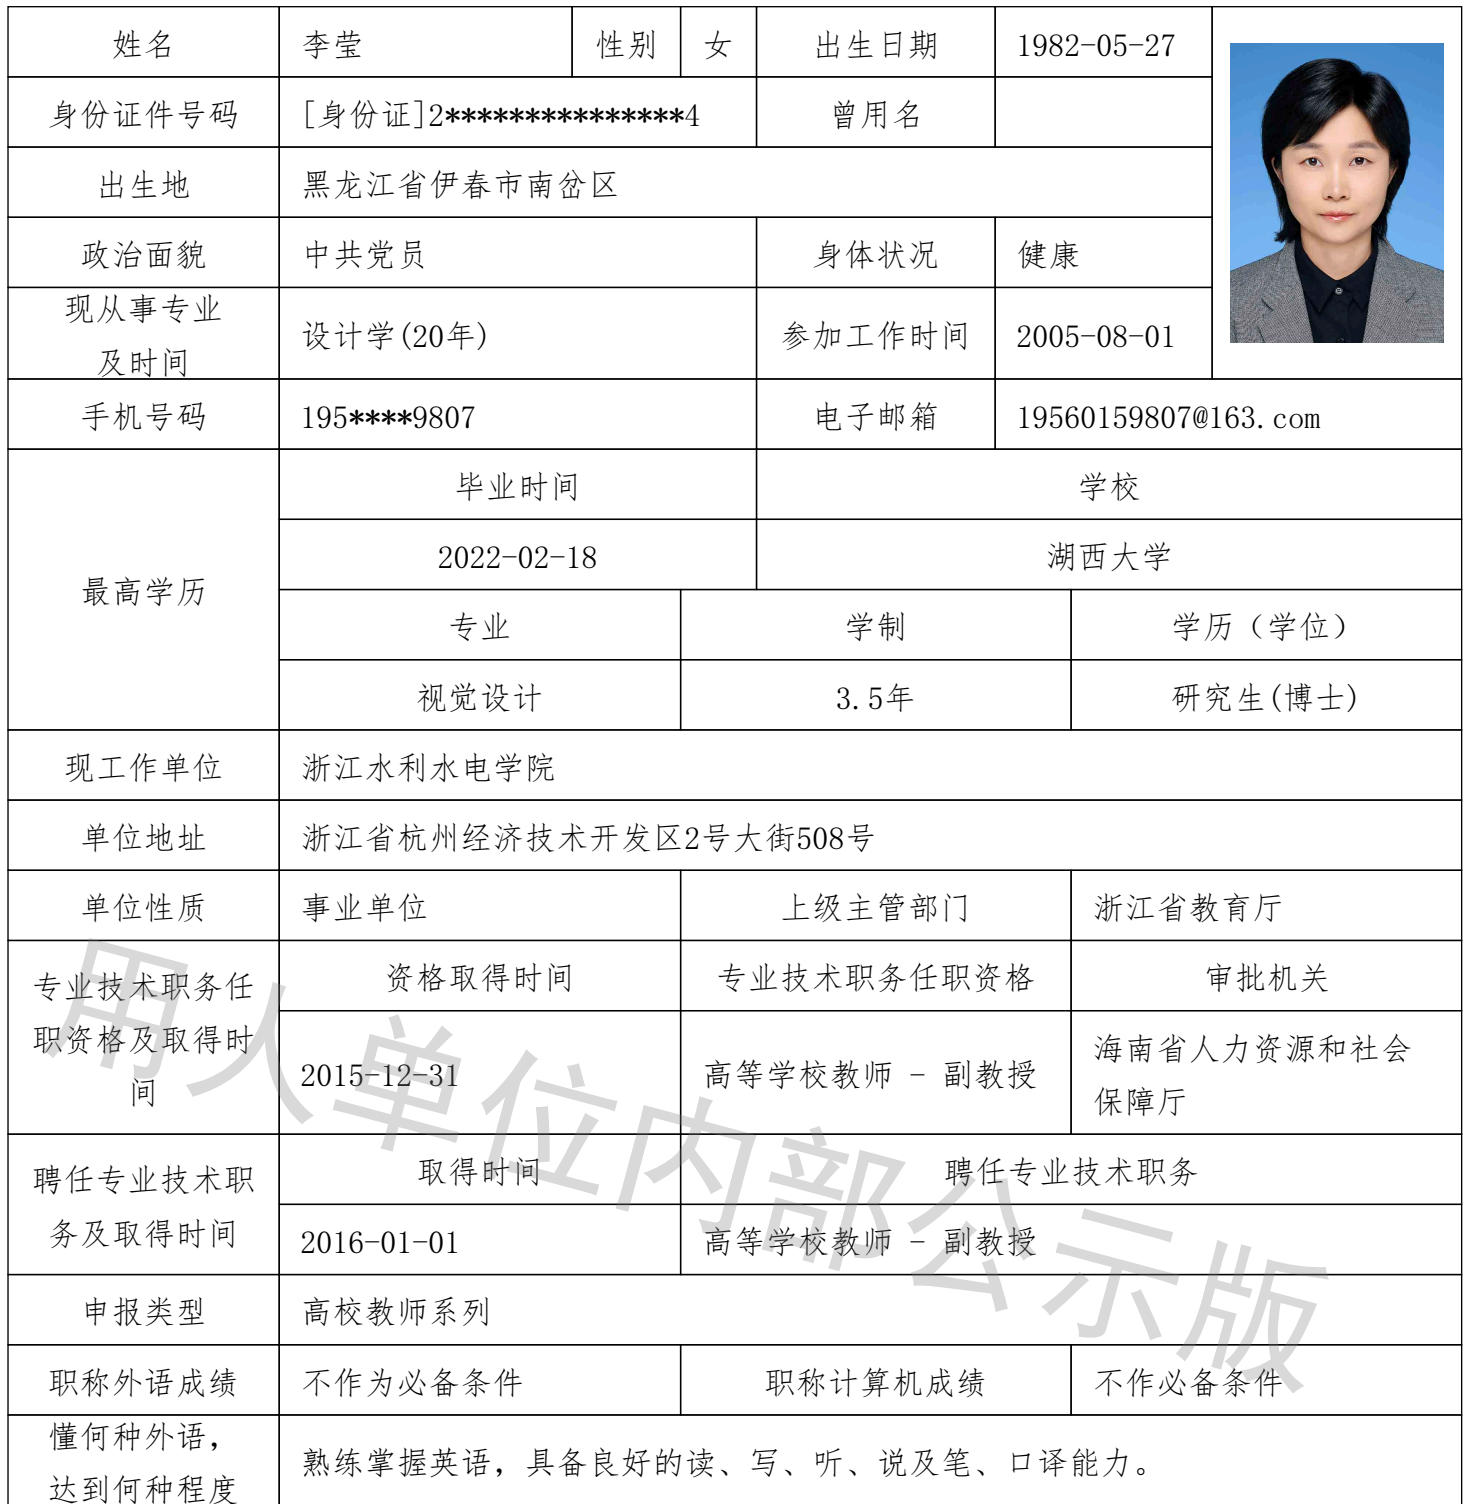 姓名 李莹 性别 女 出生日期 1982-05-27
身份证件号码 [身份证]2***************4 曾用名
出生地 黑龙江省伊春市南岔区
政治面貌 中共党员 身体状况 健康
现从事专业
及时间
设计学(20年) 参加工作时间 2005-08-01
手机号码 195****9807 电子邮箱 19560159807@163.com
最高学历
毕业时间 学校
2022-02-18 湖西大学
专业 学制 学历（学位）
视觉设计 3.5年 研究生(博士)
现工作单位 浙江水利水电学院
单位地址 浙江省杭州经济技术开发区2号大街508号
单位性质 事业单位 上级主管部门 浙江省教育厅
专业技术职务任
职资格及取得时
间
资格取得时间 专业技术职务任职资格 审批机关
2015-12-31 高等学校教师 - 副教授 海南省人力资源和社会
保障厅
聘任专业技术职
务及取得时间
取得时间 聘任专业技术职务
2016-01-01 高等学校教师 - 副教授
申报类型 高校教师系列
职称外语成绩 不作为必备条件 职称计算机成绩 不作必备条件
懂何种外语，
达到何种程度
熟练掌握英语，具备良好的读、写、听、说及笔、口译能力。
用人单位内部公示版